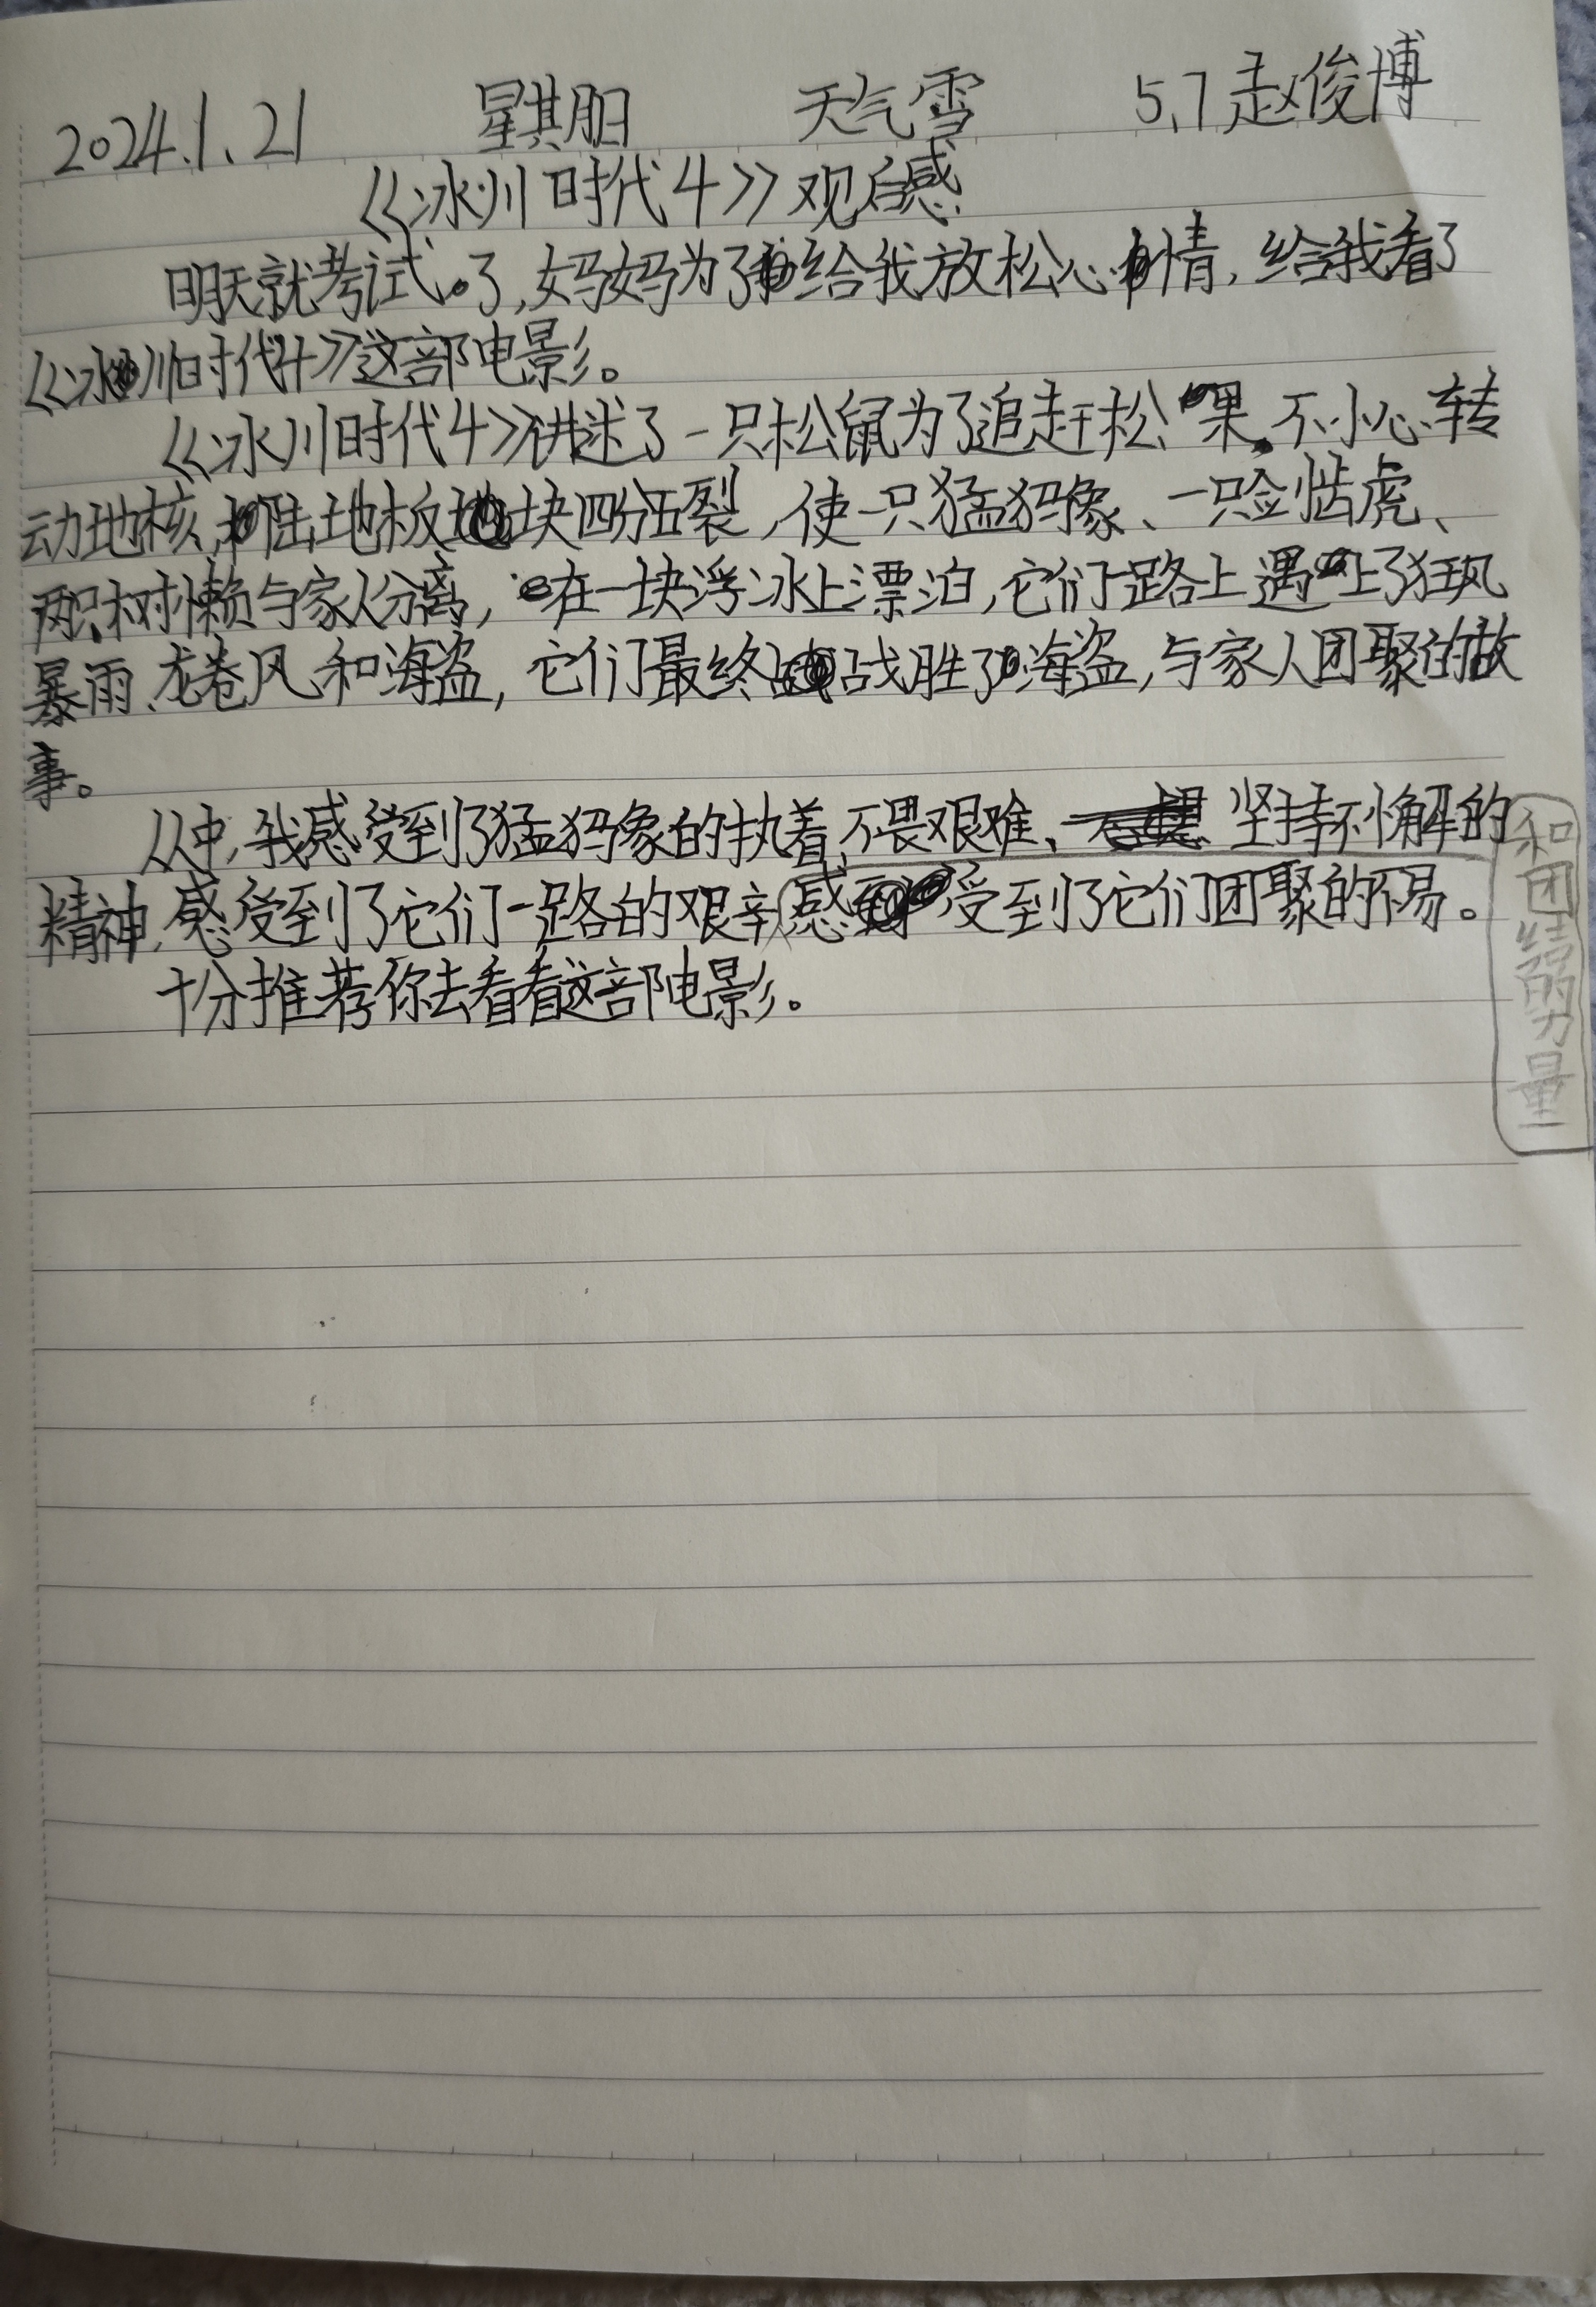 2024.1.21 星期日 天气雪 5.7赵俊博
《冰川时代4》观后感
明天就考试了,妈妈为了给我放松心情,给我看了
《冰川时代4》这部电影。
《冰川时代4》讲述了一只松鼠为了追赶松果,不小心转
动地核,陆地板块四分五裂,使一只猛犸象、一只剑齿虎、
两只树懒与家人分离,在一块浮冰上漂泊,它们一路上遇上了狂风
暴雨、龙卷风和海盗,它们最终战胜了海盗,与家人团聚的故
事。
从中,我感受到了猛犸象的执着、不畏艰难、坚持不懈的
精神,感受到了它们一路的艰辛,感受到了它们团聚的不易。
十分推荐你去看看这部电影。
和团结的力量